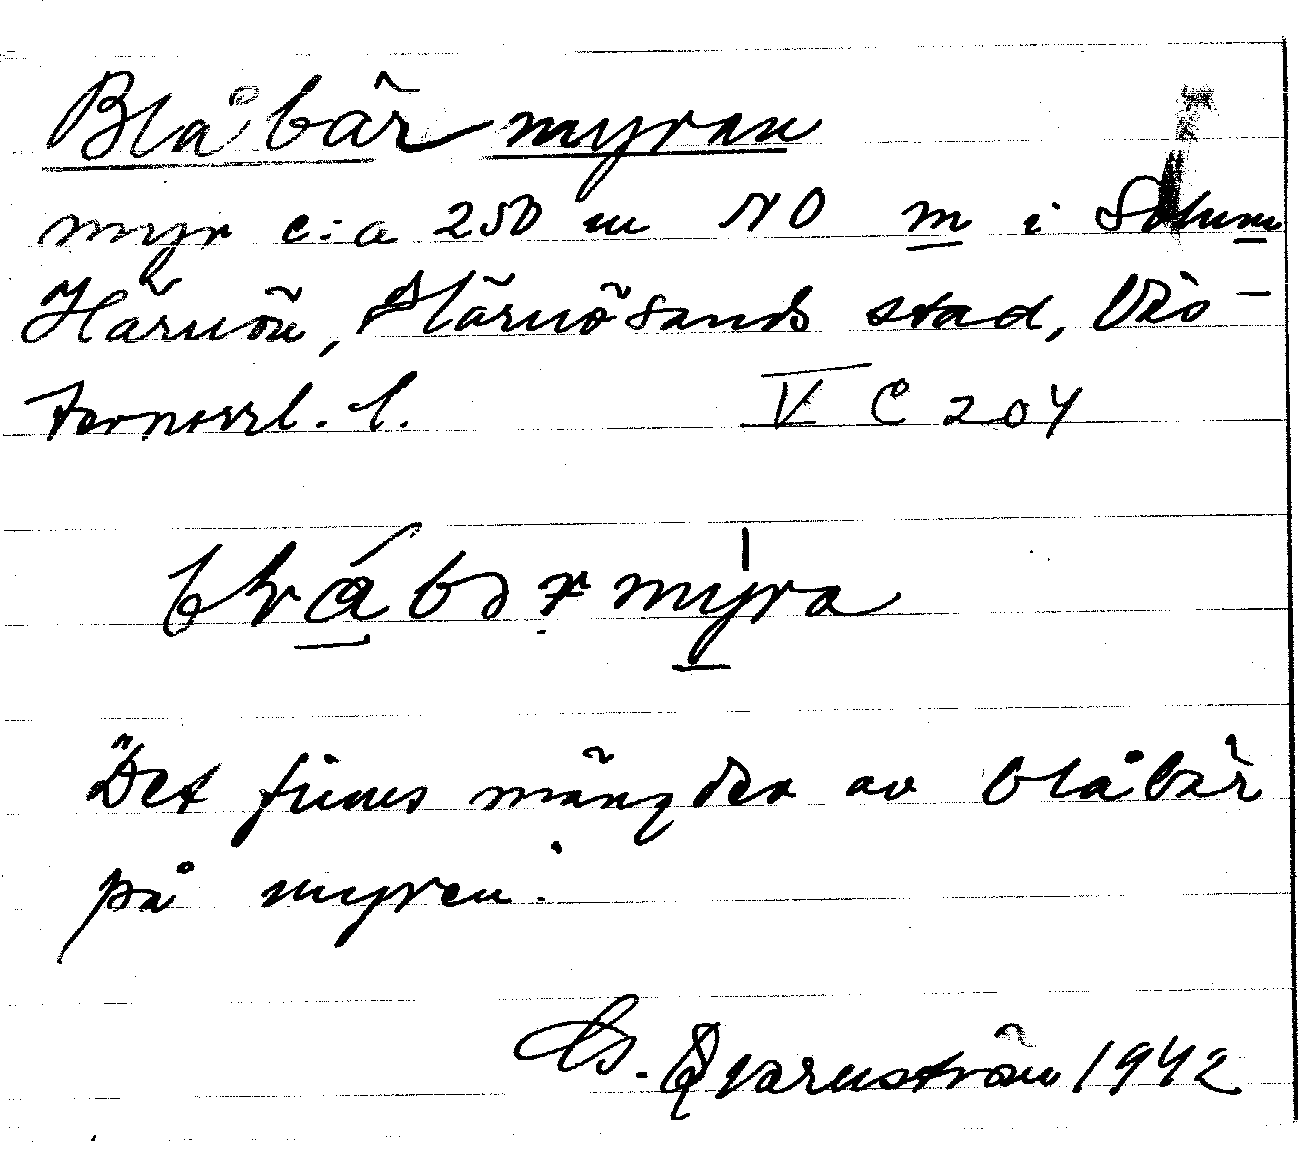 Blåbärmyran
myr c:a 250 m NO m i Solum
Härnön, Härnösands stad, Väs-
ternorrl. l. V C 204
bråbərmyra
"Det finns mängder av blåbär
på myren.
G. Qvarnström 1942